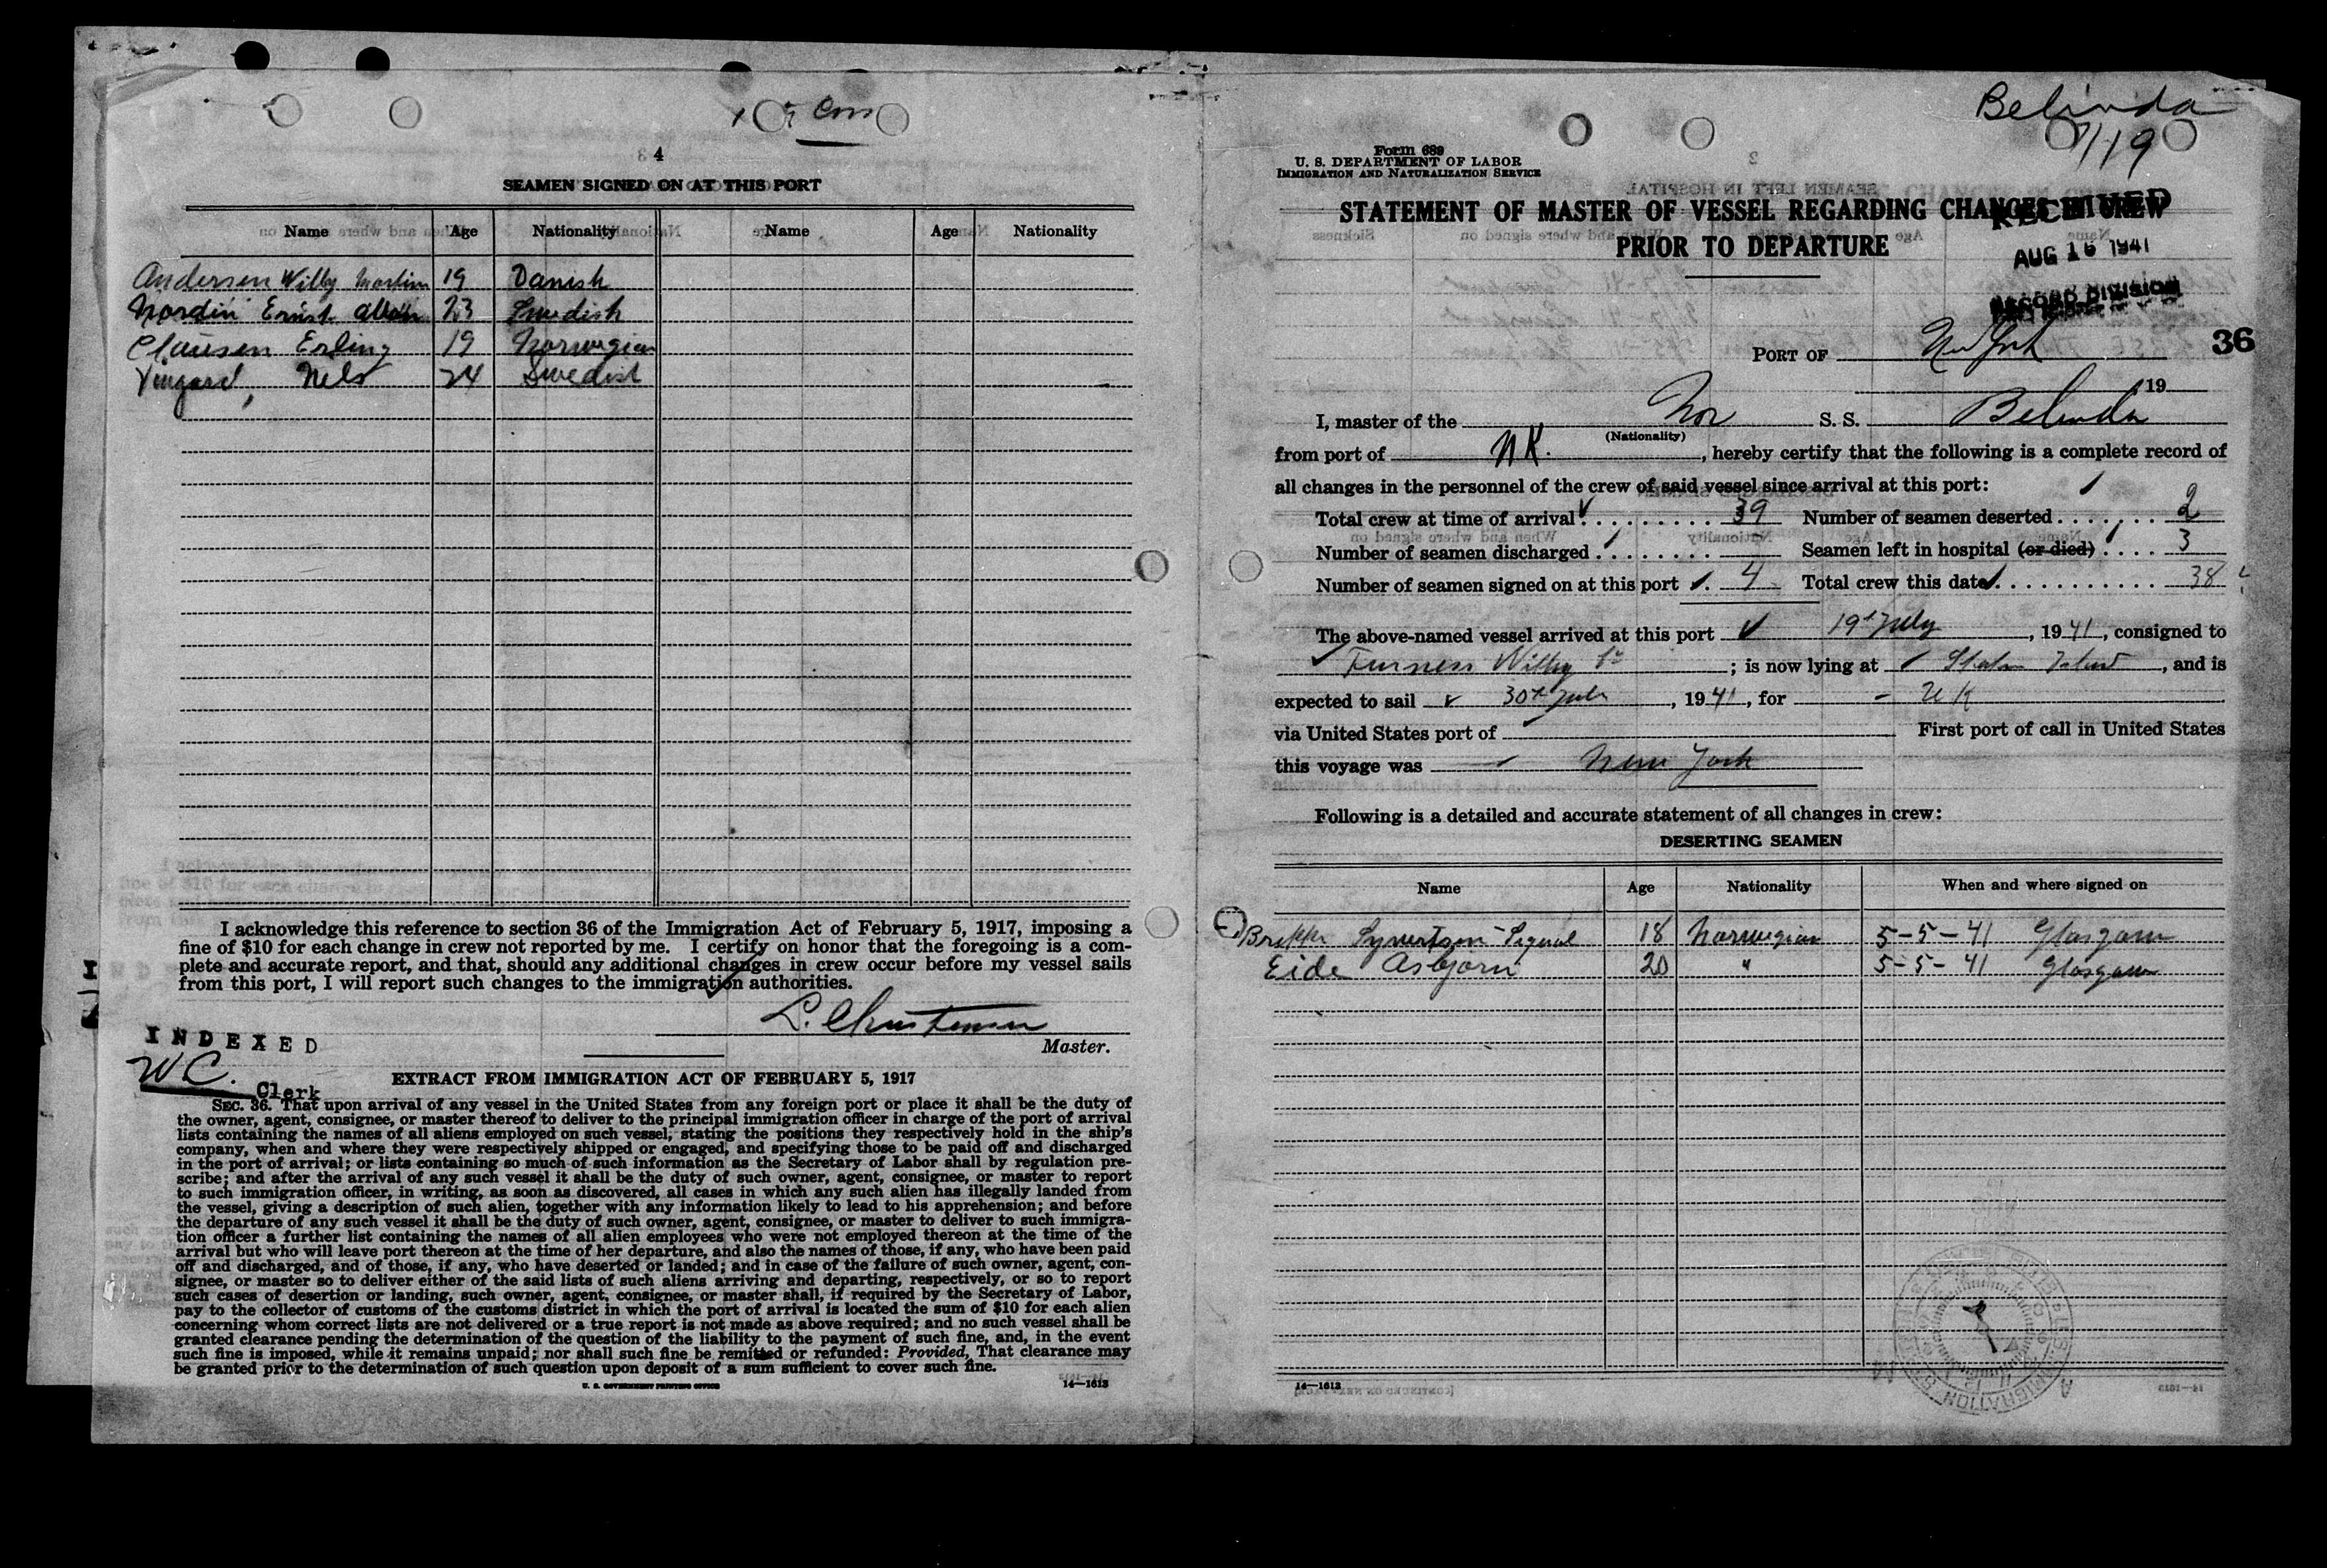 Com
4
SEAMEN SIGNED ON AT THIS PORT
Name Age Nationality Name Age Nationality
Andersen Willy Martin 19 Danish
Nordin Ernst 23 Swedish
Clausen Erling 19 Norwegian
Nels 24 Swedish
I acknowledge this reference to section 36 of the Immigration Act of February 5, 1917, imposing a
fine of $10 for each change in crew not reported by me. I certify on honor that the foregoing is a com-
plete and accurate report, and that, should any additional changes in crew occur before my vessel sails
from this port, I will report such changes to the immigration authorities.
Master.
INDEXED
W C. Clerk
EXTRACT FROM IMMIGRATION ACT OF FEBRUARY 5, 1917
SEC. 36. That upon arrival of any vessel in the United States from any foreign port or place it shall be the duty of
the owner, agent, consignee, or master thereof to deliver to the principal immigration officer in charge of the port of arrival
lists containing the names of all aliens employed on such vessel, stating the positions they respectively hold in the ship's
company, when and where they were respectively shipped or engaged, and specifying those to be paid off and discharged
in the port of arrival; or lists containing so much of such information as the Secretary of Labor shall by regulation pre-
scribe; and after the arrival of any such vessel it shall be the duty of such owner, agent, consignee, or master to report
to such immigration officer, in writing, as soon as discovered, all cases in which any such alien has illegally landed from
the vessel, giving a description of such alien, together with any information likely to lead to his apprehension; and before
the departure of any such vessel it shall be the duty of such owner, agent, consignee, or master to deliver to such immigra-
tion officer a further list containing the names of all alien employees who were not employed thereon at the time of the
arrival but who will leave port thereon at the time of her departure, and also the names of those, if any, who have been paid
off and discharged, and of those, if any, who have deserted or landed; and in case of the failure of such owner, agent, con-
signee, or master so to deliver either of the said lists of such aliens arriving and departing, respectively, or so to report
such cases of desertion or landing, such owner, agent, consignee, or master shall, if required by the Secretary of Labor,
pay to the collector of customs of the customs district in which the port of arrival is located the sum of $10 for each alien
concerning whom correct lists are not delivered or a true report is not made as above required; and no such vessel shall be
granted clearance pending the determination of the question of the liability to the payment of such fine, and, in the event
such fine is imposed, while it remains unpaid; nor shall such fine be remitted or refunded: Provided, That clearance may
be granted prior to the determination of such question upon deposit of a sum sufficient to cover such fine.
U. S. GOVERNMENT PRINTING OFFICE 14—1613
Belinda
7/19
Form 689
U. S. DEPARTMENT OF LABOR
IMMIGRATION AND NATURALIZATION SERVICE
STATEMENT OF MASTER OF VESSEL REGARDING CHANGES IN CREW
PRIOR TO DEPARTURE
RECEIVED
AUG 16 1941
RECORD DIVISION
PORT OF New York 36
19
I, master of the Nor S. S. Belinda
(Nationality)
from port of UK., hereby certify that the following is a complete record of
all changes in the personnel of the crew of said vessel since arrival at this port:
Total crew at time of arrival 39 Number of seamen deserted 2
Number of seamen discharged Seamen left in hospital (or died) 3
Number of seamen signed on at this port 4 Total crew this date 38
The above-named vessel arrived at this port 19th July, 1941, consigned to
Furness Withy Co; is now lying at Staten Island, and is
expected to sail 30th July, 1941, for UK
via United States port of First port of call in United States
this voyage was New York
Following is a detailed and accurate statement of all changes in crew:
DESERTING SEAMEN
Name Age Nationality When and where signed on
Sigurd 18 Norwegian 5-5-41 Glasgow
Eide Asbjorn 20 " 5-5-41 Glasgow
14—1613